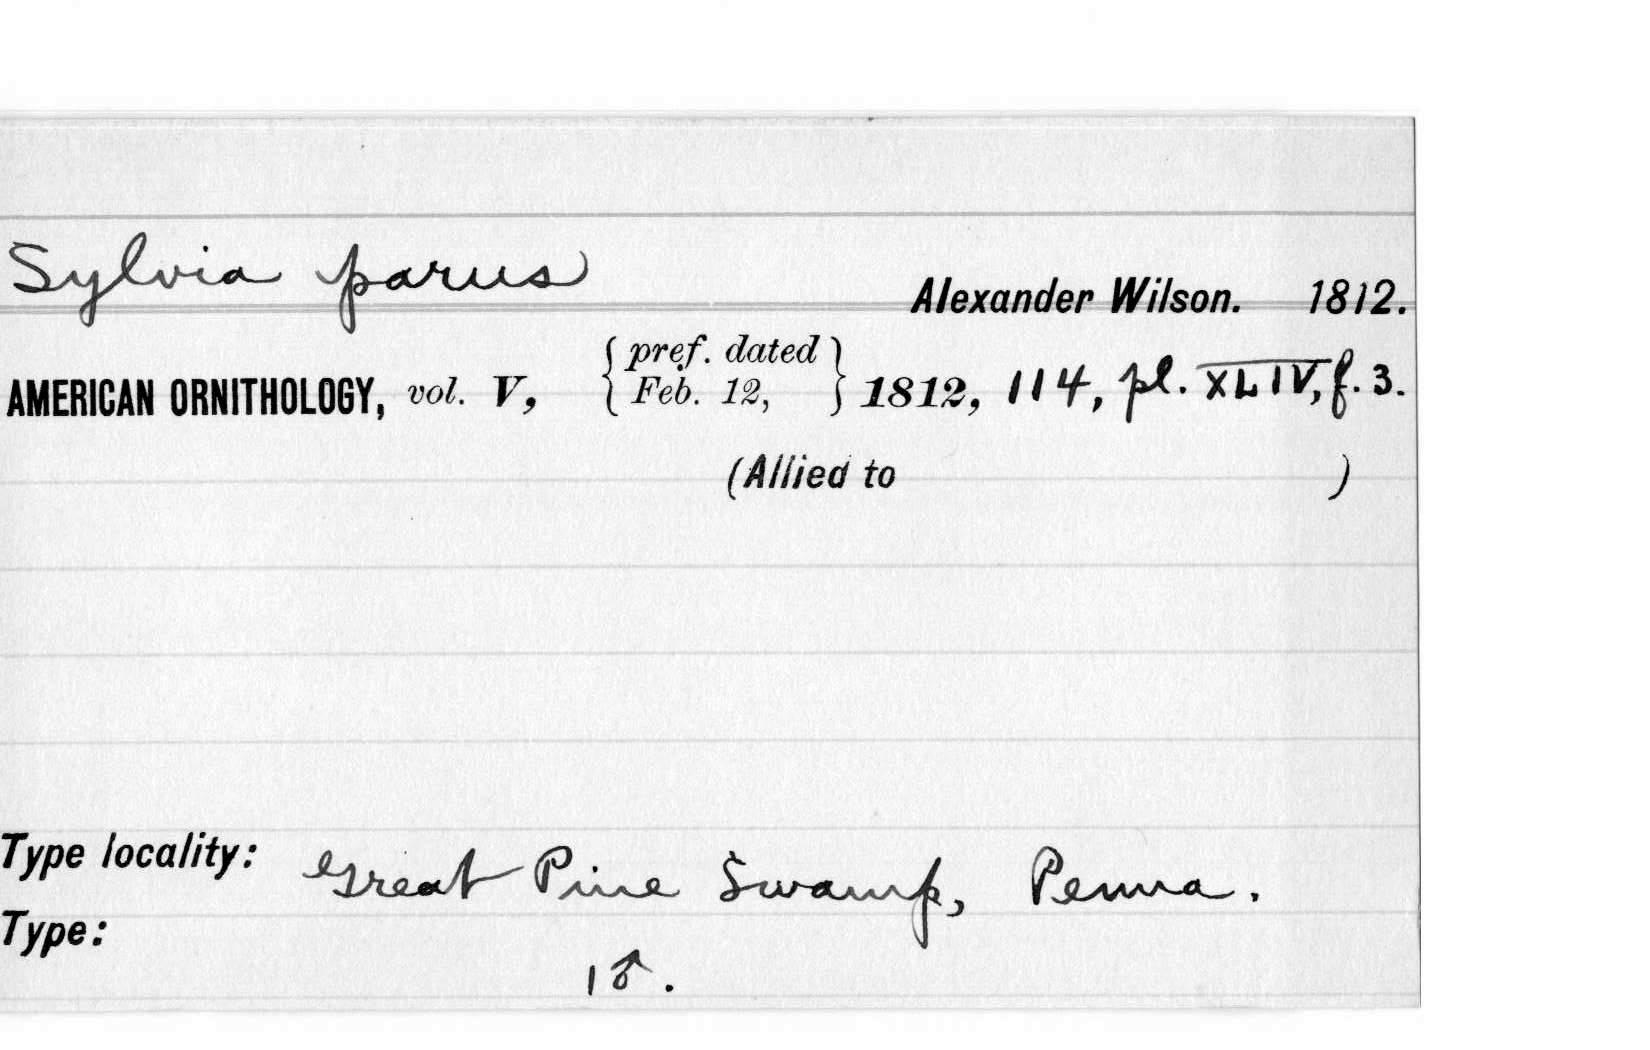 Sylvia parus
Alexander Wilson. 1812.
AMERICAN ORNITHOLOGY, vol. V, { pref. dated Feb. 12, } 1812, 114, pl. XLIV, f. 3.
(Allied to )
Type locality: Great Pine Swamp, Penna.
Type:
1♂.